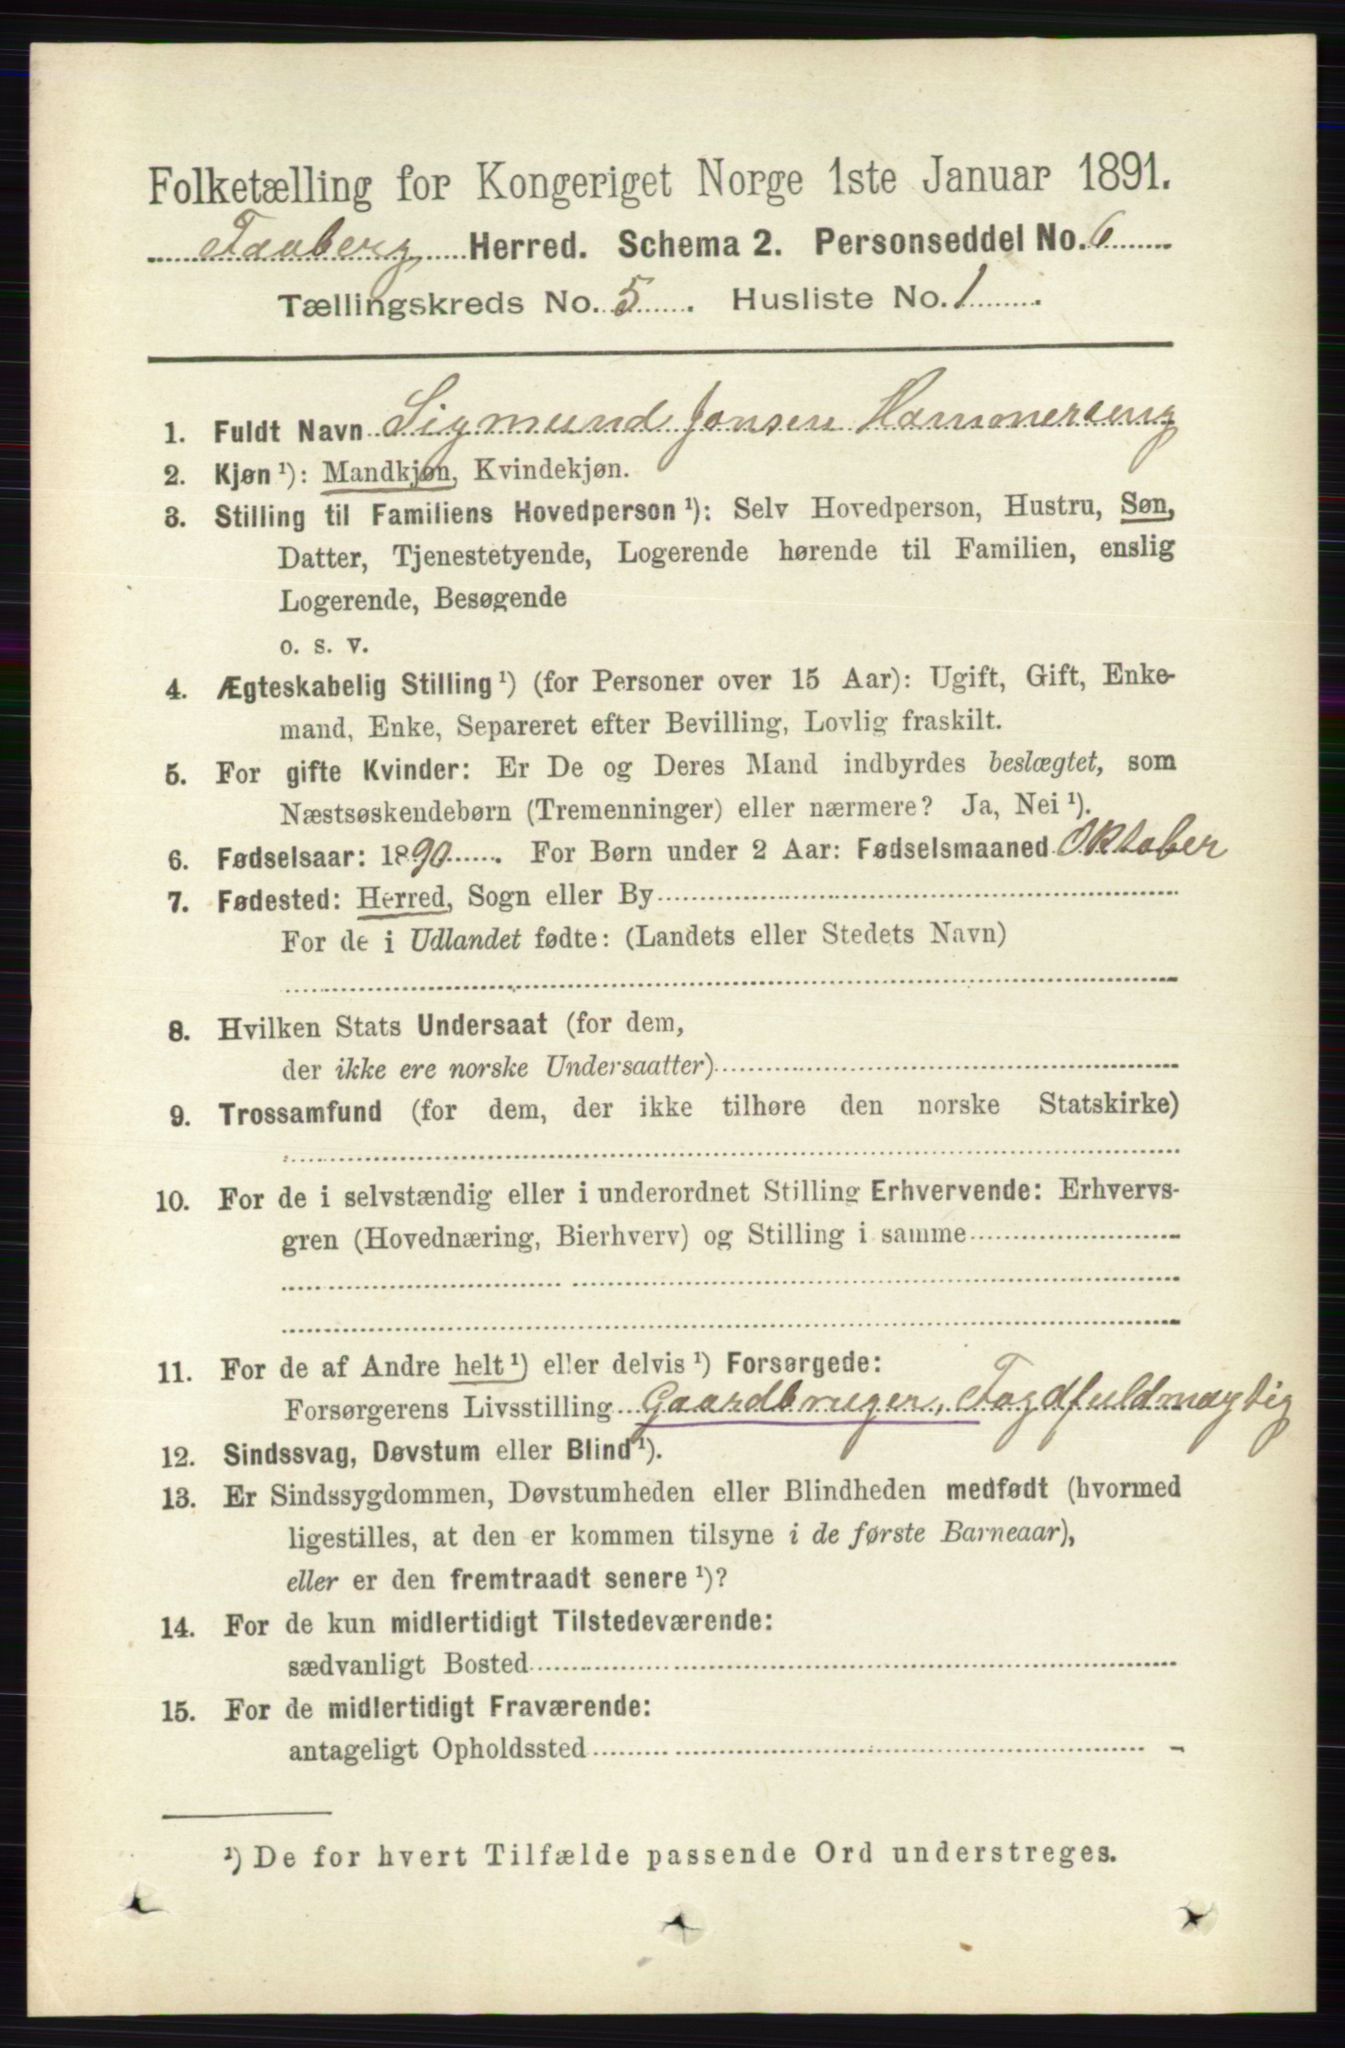 Folketælling for Kongeriget Norge 1ste Januar 1891.
Faaberg Herred. Schema 2. Personseddel No. 6
Tællingskreds No. 5. Husliste No. 1.
1. Fuldt Navn Sigmund Jonsen Hammerseng
2. Kjøn ¹): Mandkjøn, Kvindekjøn.
3. Stilling til Familiens Hovedperson ¹): Selv Hovedperson, Hustru, Søn,
Datter, Tjenestetyende, Logerende hørende til Familien, enslig
Logerende, Besøgende
o. s. v.
4. Ægteskabelig Stilling ¹) (for Personer over 15 Aar): Ugift, Gift, Enke-
mand, Enke, Separeret efter Bevilling, Lovlig fraskilt.
5. For gifte Kvinder: Er De og Deres Mand indbyrdes beslægtet, som
Næstsøskendebørn (Tremenninger) eller nærmere? Ja, Nei ¹).
6. Fødselsaar: 1890. For Børn under 2 Aar: Fødselsmaaned Oktober
7. Fødested: Herred, Sogn eller By
For de i Udlandet fødte: (Landets eller Stedets Navn)
8. Hvilken Stats Undersaat (for dem,
der ikke ere norske Undersaatter)
9. Trossamfund (for dem, der ikke tilhøre den norske Statskirke)
10. For de i selvstændig eller i underordnet Stilling Erhvervende: Erhvervs-
gren (Hovednæring, Bierhverv) og Stilling i samme
11. For de af Andre helt ¹) eller delvis ¹) Forsørgede:
Forsørgerens Livsstilling Gaardbruger, Fogdfuldmægtig
12. Sindssvag, Døvstum eller Blind ¹).
13. Er Sindssygdommen, Døvstumheden eller Blindheden medfødt (hvormed
ligestilles, at den er kommen tilsyne i de første Barneaar),
eller er den fremtraadt senere ¹)?
14. For de kun midlertidigt Tilstedeværende:
sædvanligt Bosted
15. For de midlertidigt Fraværende:
antageligt Opholdssted
¹) De for hvert Tilfælde passende Ord understreges.